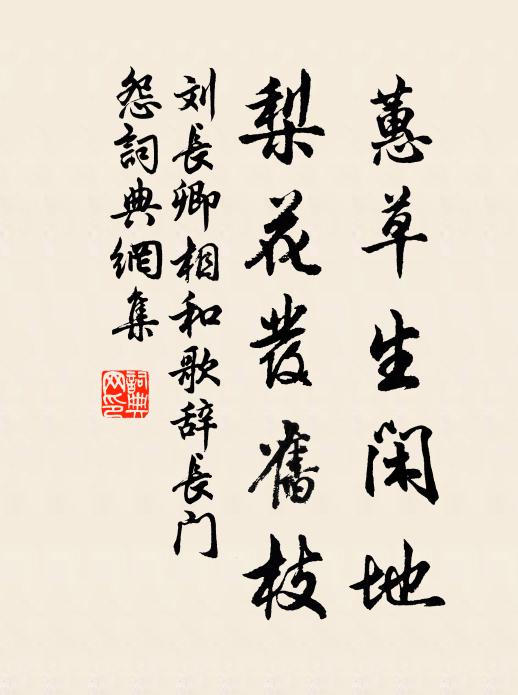 蕙草生闲地
梨花發舊枝
刘長卿相和歌辞長门
怨詞典網集
詞典网印